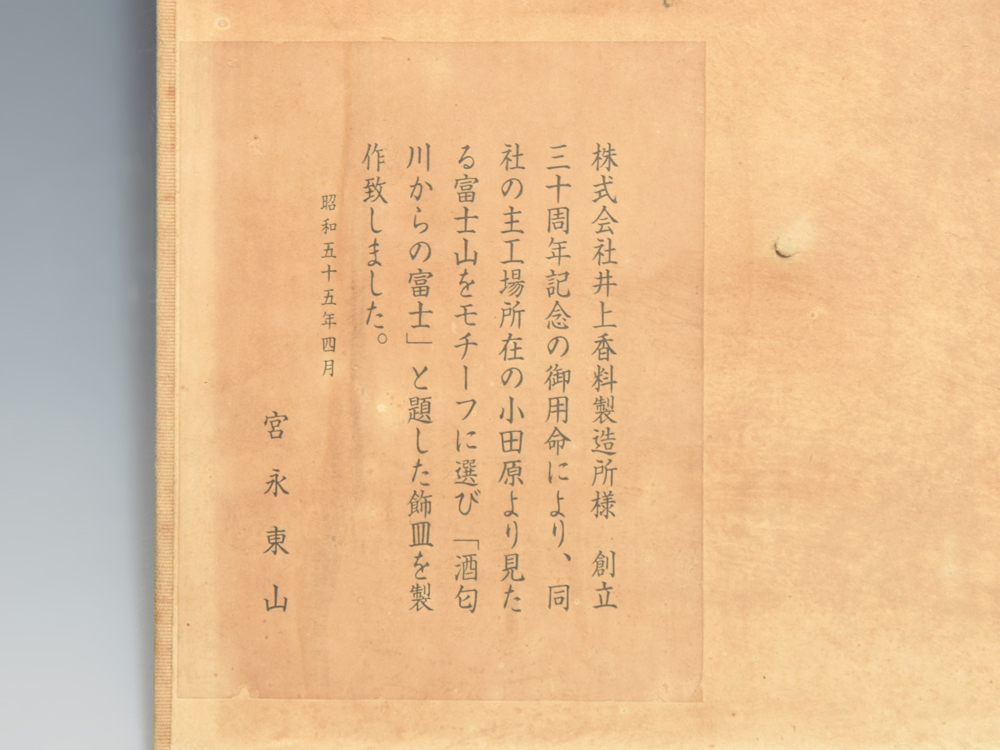 株式会社井上香料製造所様　創立
三十周年記念の御用命により、同
社の主工場所在の小田原より見た
る富士山をモチーフに選び「酒匂
川からの富士」と題した飾皿を製
作致しました。
昭和五十五年四月
宮永東山